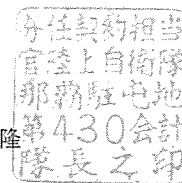 分任契約担当
官陸上自衛隊
那覇駐屯地
第430会計
隊長之印
隆